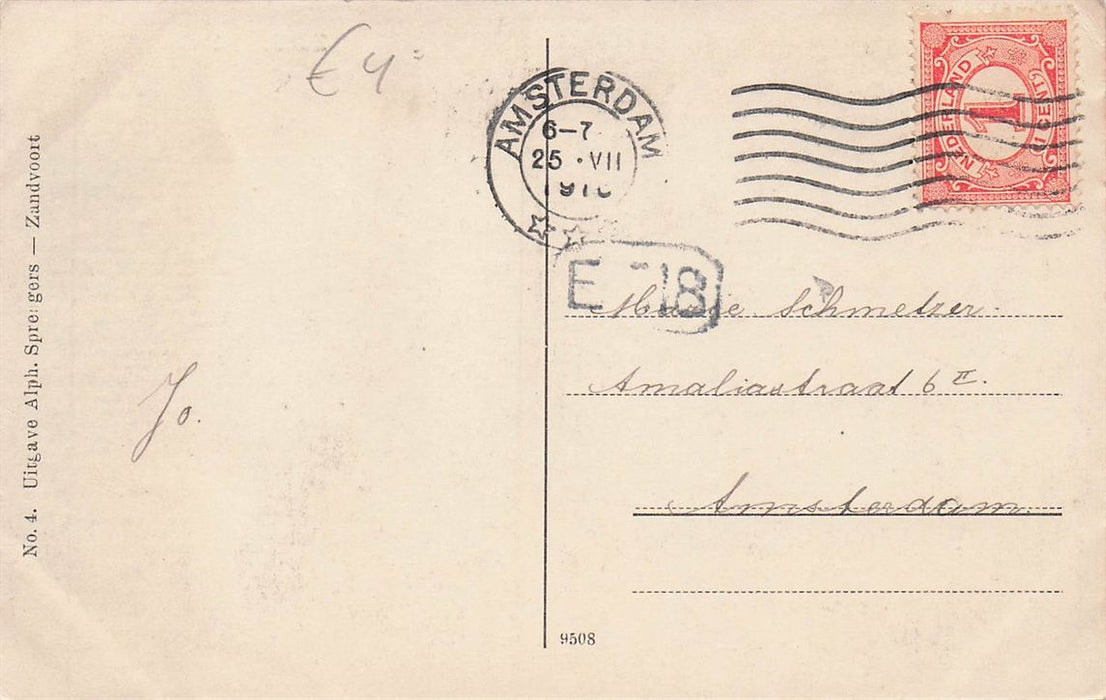 € 4
AMSTERDAM
6-7
25 · VII
NEDERLAND
1
1 CENT
E 18
Schmetzer.
Amaliastraat 6 II.
Amsterdam.
Jo.
No. 4. Uitgave Alph. Spreigers — Zandvoort
9508